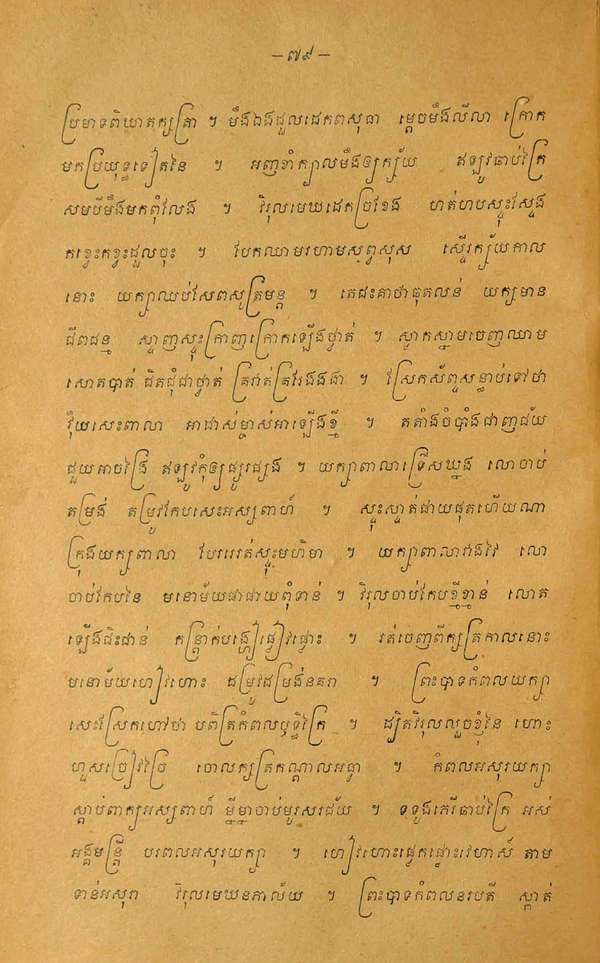 – ៧៩ –
ប្រមាទពិឃាតក្សត្រា ។ មឹងឯងដួលដេកពសុធា ម្ដេចមឹងលីលា ក្រោក
មកប្រយុទ្ធទៀតនៃ ។ អញខាំក្បាលមឹងឲ្យក្ស័យ ឥឡូវឆាប់ក្រៃ
សមបីម៉ឹងមកពុំលែង ។ វិរុលមេឃដេកច្រវែខែង ហត់ហបស្ទុះស្ទែង
កខ្វេះកខ្វះដួលចុះ ។ បែកឈាមរហាមសព្វសុស ស្ទើរក្ស័យកាល
នោះ យក្សាឈប់សែពសូត្រមន្ត ។ តេជះគាថាធុតលន់ យក្សមាន
ជីពជន្ម ស្ទាញស្ទុះក្រាញក្រោកឡើងថ្ងាត់ ។ ស្ទាកស្នាមចេញឈាម
សោតបាត់ ជិតជុំជាថ្ងាត់ គ្រវាត់គ្រវែងដងវា ។ ស្រែកស័ព្ទសន្ធាប់ទៅថា
វ៉ឺយសេះពាលា អាជាស់ម្ចាស់អាឡើងខ្ញី ។ តតាំងចំបាំងជាញជ័យ
ជួយអាចង្រៃ ឥឡូវកុំឲ្យផ្សូរផ្សង ។ យក្សាពាលាទ្រើសឃ្នង លោចាប់
តម្រង់ តម្រូវកែបសេះអស្សពាហ៍ ។ ស្ទុះស្ទាត់ជាយផុតហើយណា
ក្រុងយក្សពាលា បែរវេរត់ស្ទុះមហិមា ។ យក្សាពាលាវាងវៃ លោ
ចាប់កែបនៃ មនោម័យផាផាយពុំទាន់ ។ វិរុលចាប់កែបខ្ញីខ្មាន់ លោត
ឡើងជិះជាន់ កន្ត្រាក់បង្ហៀផ្ងៀវផ្ងោះ ។ រត់ចេញពីក្សត្រកាលនោះ
មនោម័យហៀវហោះ ដម្រូវដម្រង់នគរា ។ ព្រះបាទកំពលយក្សា
សេះស្រែកហៅថា បពិត្រកំពលឫទ្ធិក្រៃ ។ ដ្បិតវិរុលលួចខ្ញុំនៃ ហោះ
ហួសច្រៀវច្រៃ ចោលក្សត្រកណ្ដាលអធ្វា ។ កំពលអសុរយក្សា
ស្ដាប់ពាក្យអស្សពាហ៍ ម្នីម្នាចាប់មួរសរជ័យ ។ ទទូងភេរីឆាប់ក្រៃ អស់
អង្គមន្ត្រី បរពលអសុរយក្សា ។ ហៀវហោះផ្ងេកផ្លោះវេហាស៍ តាម
ទាន់អសុរា វិរុលមេឃនភាល័យ ។ ព្រះបាទកំពលនរបតី ស្កាត់